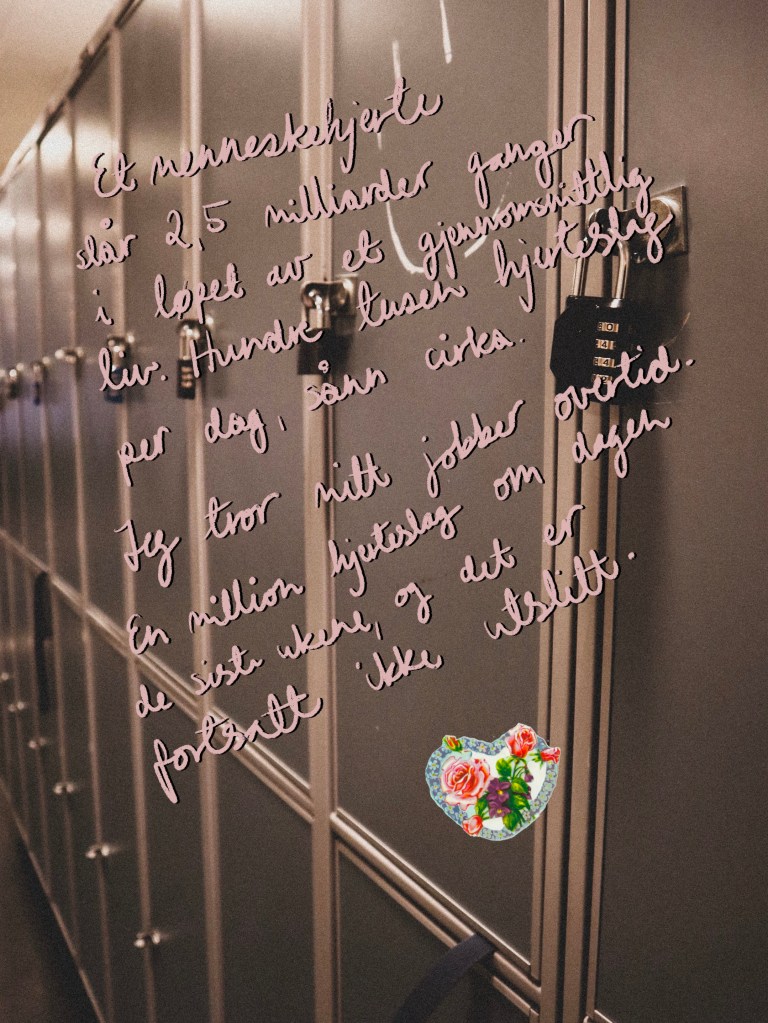 Et menneskehjerte
slår 2,5 milliarder ganger
i løpet av et gjennomsnittlig
liv. Hundre tusen hjerteslag
per dag, sånn cirka.
Jeg tror mitt jobber overtid.
En million hjerteslag om dagen
de siste ukene, og det er
fortsatt ikke utslitt.
0
4
4